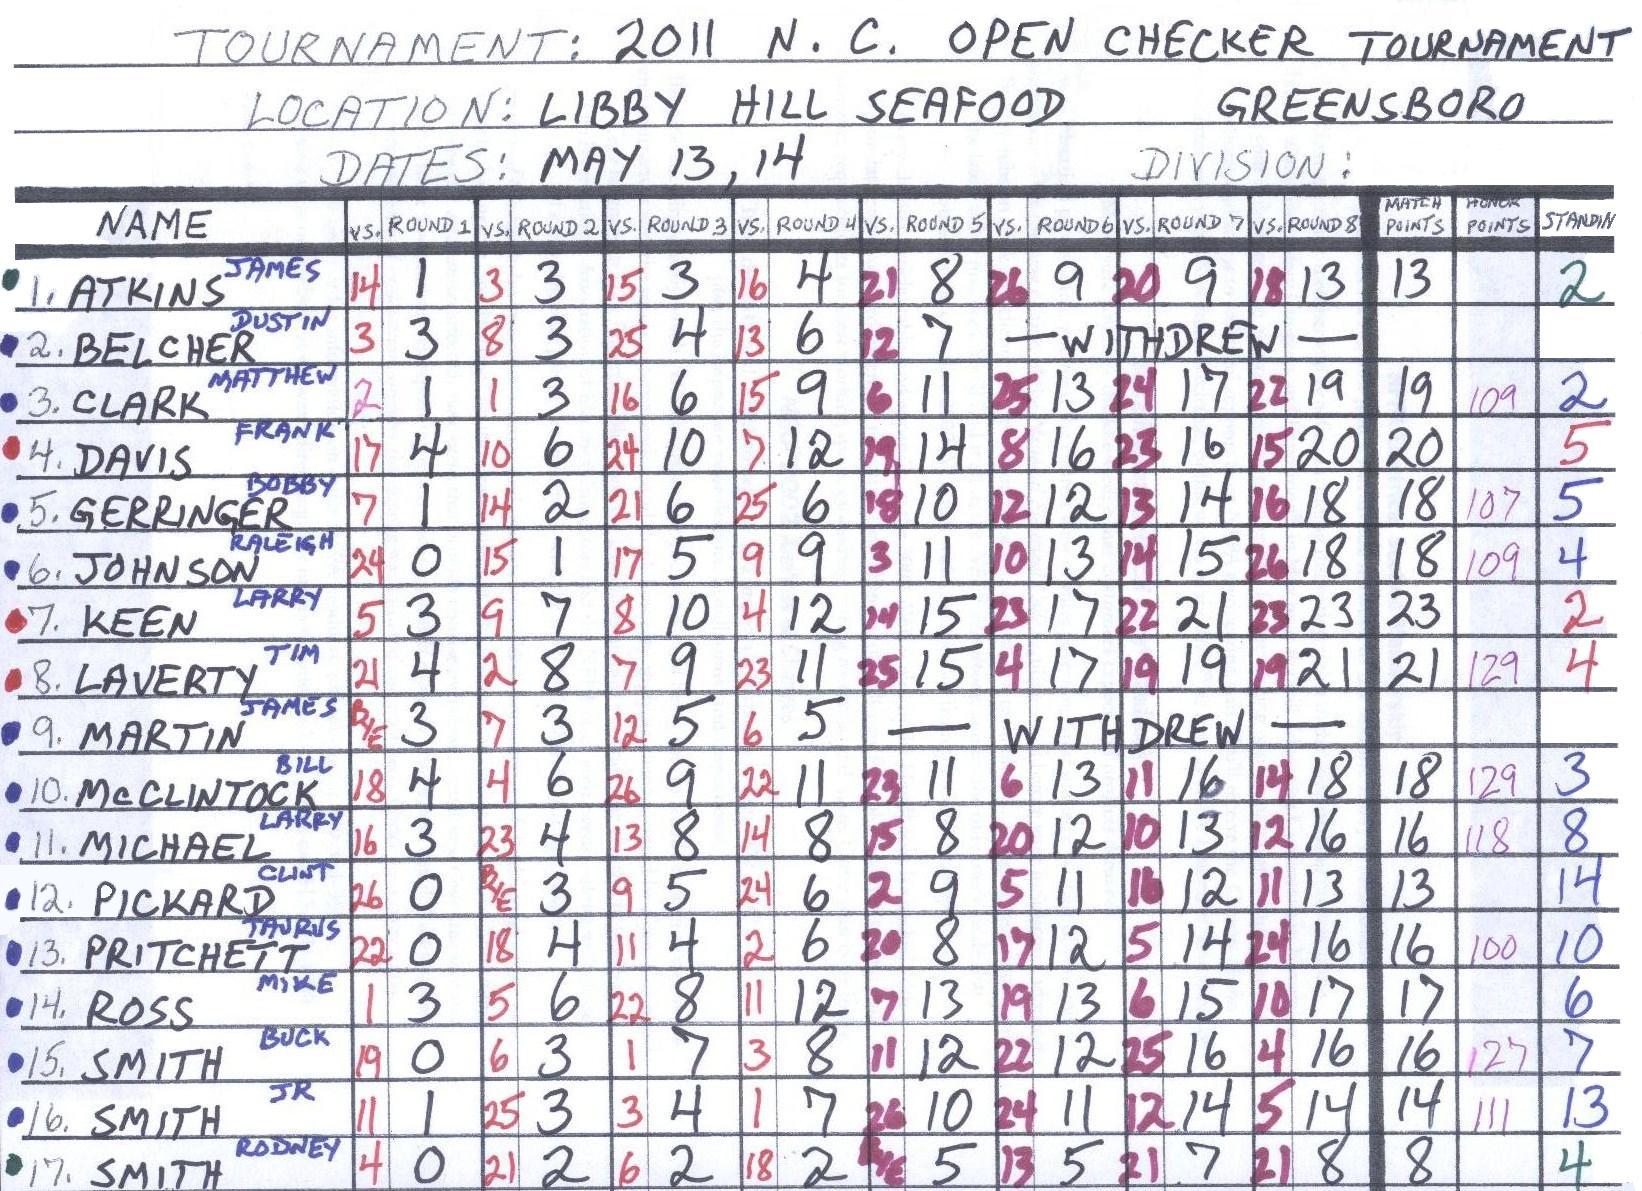 TOURNAMENT: 2011 N.C. OPEN CHECKER TOURNAMENT
LOCATION: LIBBY HILL SEAFOOD GREENSBORO
DATES: MAY 13, 14 DIVISION:
NAME VS. ROUND 1 VS. ROUND 2 VS. ROUND 3 VS. ROUND 4 VS. ROUND 5 VS. ROUND 6 VS. ROUND 7 VS. ROUND 8 MATCH POINTS HONOR POINTS STANDIN
1. ATKINS JAMES 14 1 3 3 15 3 16 4 21 8 26 9 20 9 18 13 13 2
2. BELCHER DUSTIN 3 3 8 3 25 4 13 6 12 7 — WITHDREW —
3. CLARK MATTHEW 2 1 1 3 16 6 15 9 6 11 25 13 24 17 22 19 19 109 2
4. DAVIS FRANK 17 4 10 6 24 10 7 12 19 14 8 16 23 16 15 20 20 5
5. GERRINGER BOBBY 7 1 14 2 21 6 25 6 18 10 12 12 13 14 16 18 18 107 5
6. JOHNSON RALEIGH 24 0 15 1 17 5 9 9 3 11 10 13 14 15 26 18 18 109 4
7. KEEN LARRY 5 3 9 7 8 10 4 12 14 15 23 17 22 21 23 23 23 2
8. LAVERTY TIM 21 4 2 8 7 9 23 11 25 15 4 17 19 19 19 21 21 129 4
9. MARTIN JAMES BYE 3 7 3 12 5 6 5 — WITHDREW —
10. McCLINTOCK BILL 18 4 4 6 26 9 22 11 23 11 6 13 11 16 14 18 18 129 3
11. MICHAEL LARRY 16 3 23 4 13 8 14 8 15 8 20 12 10 13 12 16 16 118 8
12. PICKARD CLINT 26 0 BYE 3 9 5 24 6 2 9 5 11 16 12 11 13 13 14
13. PRITCHETT TAURUS 22 0 18 4 11 4 2 6 20 8 17 12 5 14 24 16 16 100 10
14. ROSS MIKE 1 3 5 6 22 8 11 12 7 13 19 13 6 15 10 17 17 6
15. SMITH BUCK 19 0 6 3 1 7 3 8 11 12 22 12 25 16 4 16 16 127 7
16. SMITH JR 11 1 25 3 3 4 1 7 26 10 24 11 12 14 5 14 14 111 13
17. SMITH RODNEY 4 0 21 2 6 2 18 2 BYE 5 13 5 21 7 21 8 8 4